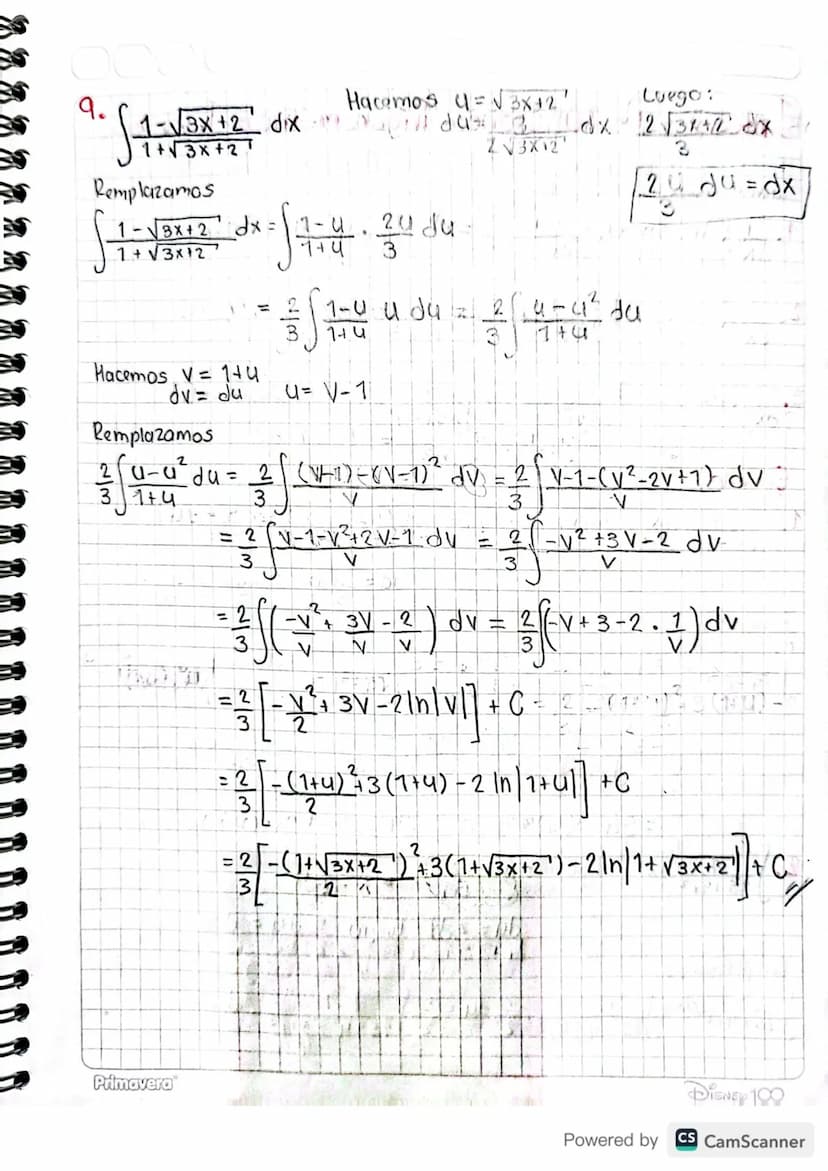 9. ∫ (1-√(3x+2))/(1+√(3x+2)) dx Hacemos u=√(3x+2) Luego:
du= 3/(2√(3x+2)) dx 2√(3x+2)/3 dx
2u/3 du = dx
Remplazamos
∫ (1-√(3x+2))/(1+√(3x+2)) dx = ∫ (1-u)/(1+u) · 2u/3 du
= 2/3 ∫ (1-u)/(1+u) u du = 2/3 ∫ (u-u²)/(1+u) du
Hacemos v = 1+u
dv = du u= v-1
Remplazamos
2/3 ∫ (u-u²)/(1+u) du = 2/3 ∫ ((v-1)-(v-1)²)/v dv = 2/3 ∫ (v-1-(v²-2v+1))/v dv
= 2/3 ∫ (v-1-v²+2v-1)/v dv = 2/3 ∫ (-v²+3v-2)/v dv
= 2/3 ∫ (-v²/v + 3v/v - 2/v) dv = 2/3 ∫ (-v+3-2·1/v) dv
= 2/3 [-v²/2 + 3v - 2ln|v|] + C
= 2/3 [-(1+u)²/2 + 3(1+u) - 2 ln|1+u|] + C
= 2/3 [-(1+√(3x+2))²/2 + 3(1+√(3x+2)) - 2ln|1+√(3x+2)|] + C
Primavera
Disney 100
Powered by CS CamScanner